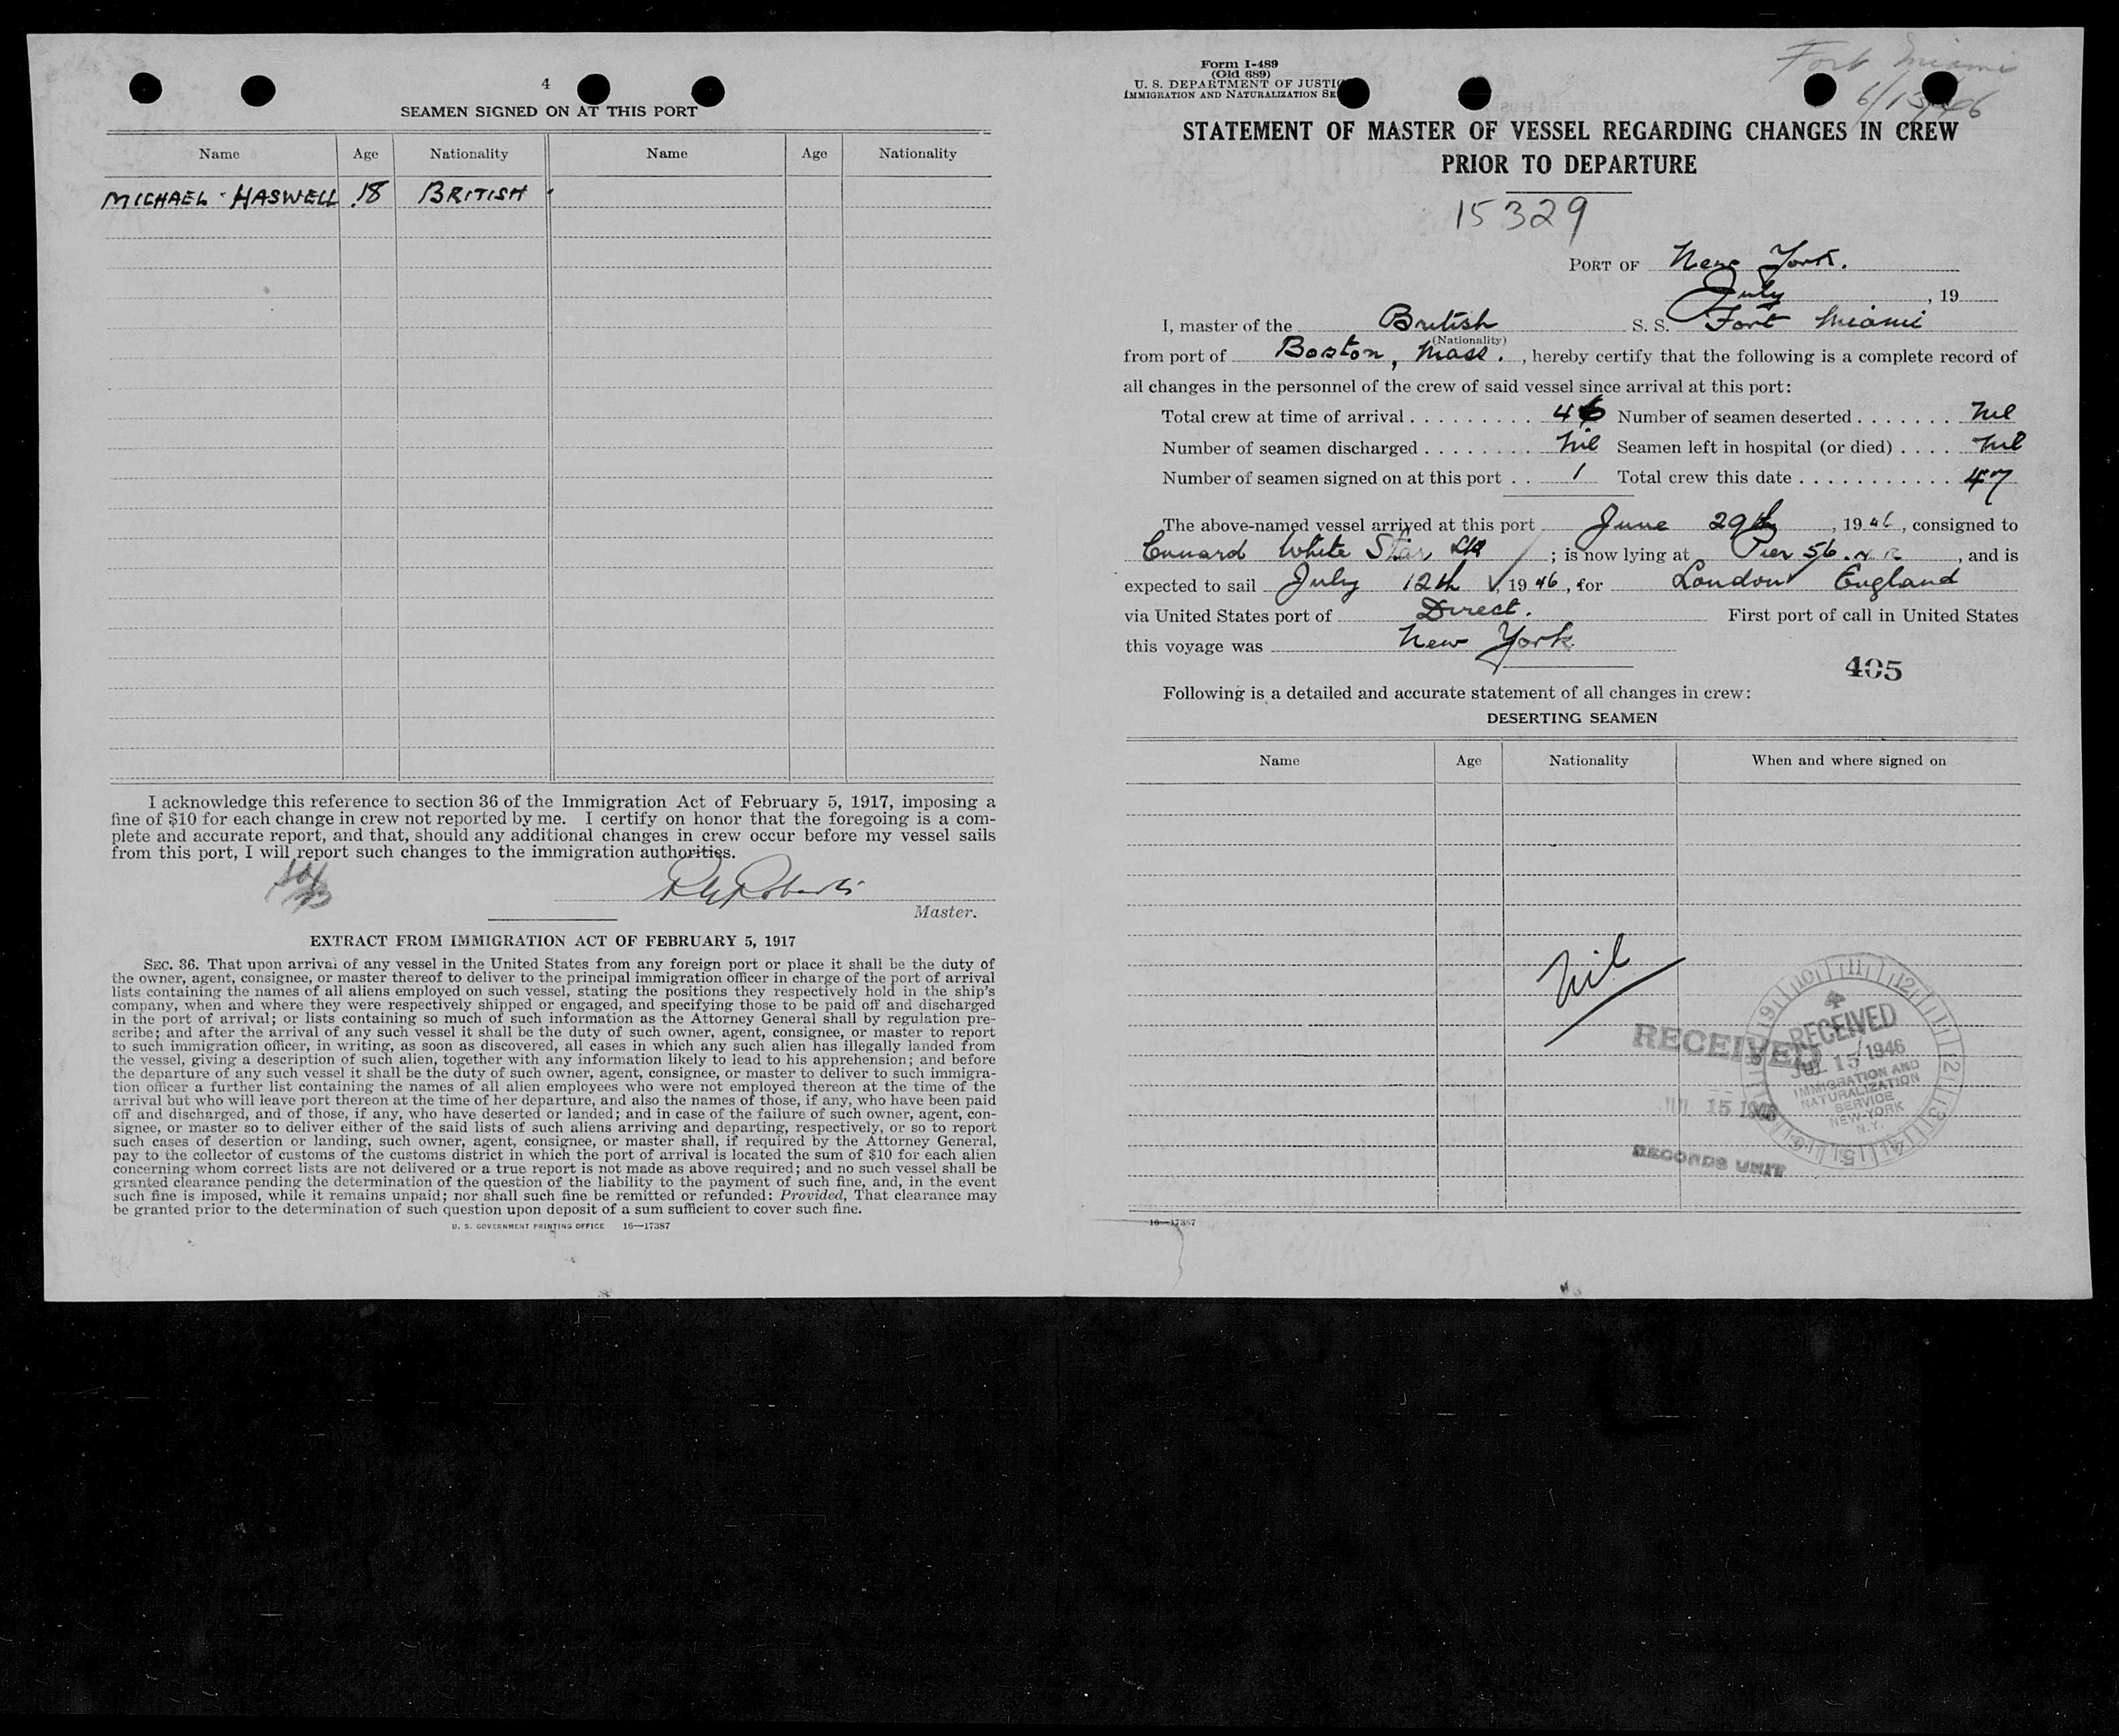 4
SEAMEN SIGNED ON AT THIS PORT
Name Age Nationality Name Age Nationality
MICHAEL HASWELL 18 BRITISH
I acknowledge this reference to section 36 of the Immigration Act of February 5, 1917, imposing a
fine of $10 for each change in crew not reported by me. I certify on honor that the foregoing is a com-
plete and accurate report, and that, should any additional changes in crew occur before my vessel sails
from this port, I will report such changes to the immigration authorities.
Roberts
Master.
EXTRACT FROM IMMIGRATION ACT OF FEBRUARY 5, 1917
SEC. 36. That upon arrival of any vessel in the United States from any foreign port or place it shall be the duty of
the owner, agent, consignee, or master thereof to deliver to the principal immigration officer in charge of the port of arrival
lists containing the names of all aliens employed on such vessel, stating the positions they respectively hold in the ship's
company, when and where they were respectively shipped or engaged, and specifying those to be paid off and discharged
in the port of arrival; or lists containing so much of such information as the Attorney General shall by regulation pre-
scribe; and after the arrival of any such vessel it shall be the duty of such owner, agent, consignee, or master to report
to such immigration officer, in writing, as soon as discovered, all cases in which any such alien has illegally landed from
the vessel, giving a description of such alien, together with any information likely to lead to his apprehension; and before
the departure of any such vessel it shall be the duty of such owner, agent, consignee, or master to deliver to such immigra-
tion officer a further list containing the names of all alien employees who were not employed thereon at the time of the
arrival but who will leave port thereon at the time of her departure, and also the names of those, if any, who have been paid
off and discharged, and of those, if any, who have deserted or landed; and in case of the failure of such owner, agent, con-
signee, or master so to deliver either of the said lists of such aliens arriving and departing, respectively, or so to report
such cases of desertion or landing, such owner, agent, consignee, or master shall, if required by the Attorney General,
pay to the collector of customs of the customs district in which the port of arrival is located the sum of $10 for each alien
concerning whom correct lists are not delivered or a true report is not made as above required; and no such vessel shall be
granted clearance pending the determination of the question of the liability to the payment of such fine, and, in the event
such fine is imposed, while it remains unpaid; nor shall such fine be remitted or refunded: Provided, That clearance may
be granted prior to the determination of such question upon deposit of a sum sufficient to cover such fine.
U. S. GOVERNMENT PRINTING OFFICE 16—17387
Form I-489
(Old 689)
U. S. DEPARTMENT OF JUSTIC
IMMIGRATION AND NATURALIZATION SE
Fort Miami
STATEMENT OF MASTER OF VESSEL REGARDING CHANGES IN CREW
PRIOR TO DEPARTURE
15329
PORT OF New York.
July , 19
I, master of the British S. S. Fort Miami
(Nationality)
from port of Boston, Mass. , hereby certify that the following is a complete record of
all changes in the personnel of the crew of said vessel since arrival at this port:
Total crew at time of arrival . . . . . . . . . 46 Number of seamen deserted . . . . . . . Nil
Number of seamen discharged . . . . . . . . Nil Seamen left in hospital (or died) . . . . Nil
Number of seamen signed on at this port . . 1 Total crew this date . . . . . . . . . . . 47
The above-named vessel arrived at this port June 29th , 1946 , consigned to
Cunard White Star Ltd ; is now lying at Pier 56. N R , and is
expected to sail July 12th , 1946 , for London England
via United States port of Direct. First port of call in United States
this voyage was New York
405
Following is a detailed and accurate statement of all changes in crew:
DESERTING SEAMEN
Name Age Nationality When and where signed on
Nil
RECEIVED
JUL 15 1946
RECORDS UNIT
9 10 11 12 1 2 3 4 5 6
RECEIVED
JUL 15 1946
IMMIGRATION AND
NATURALIZATION
SERVICE
NEW YORK
N.Y.
16—17387